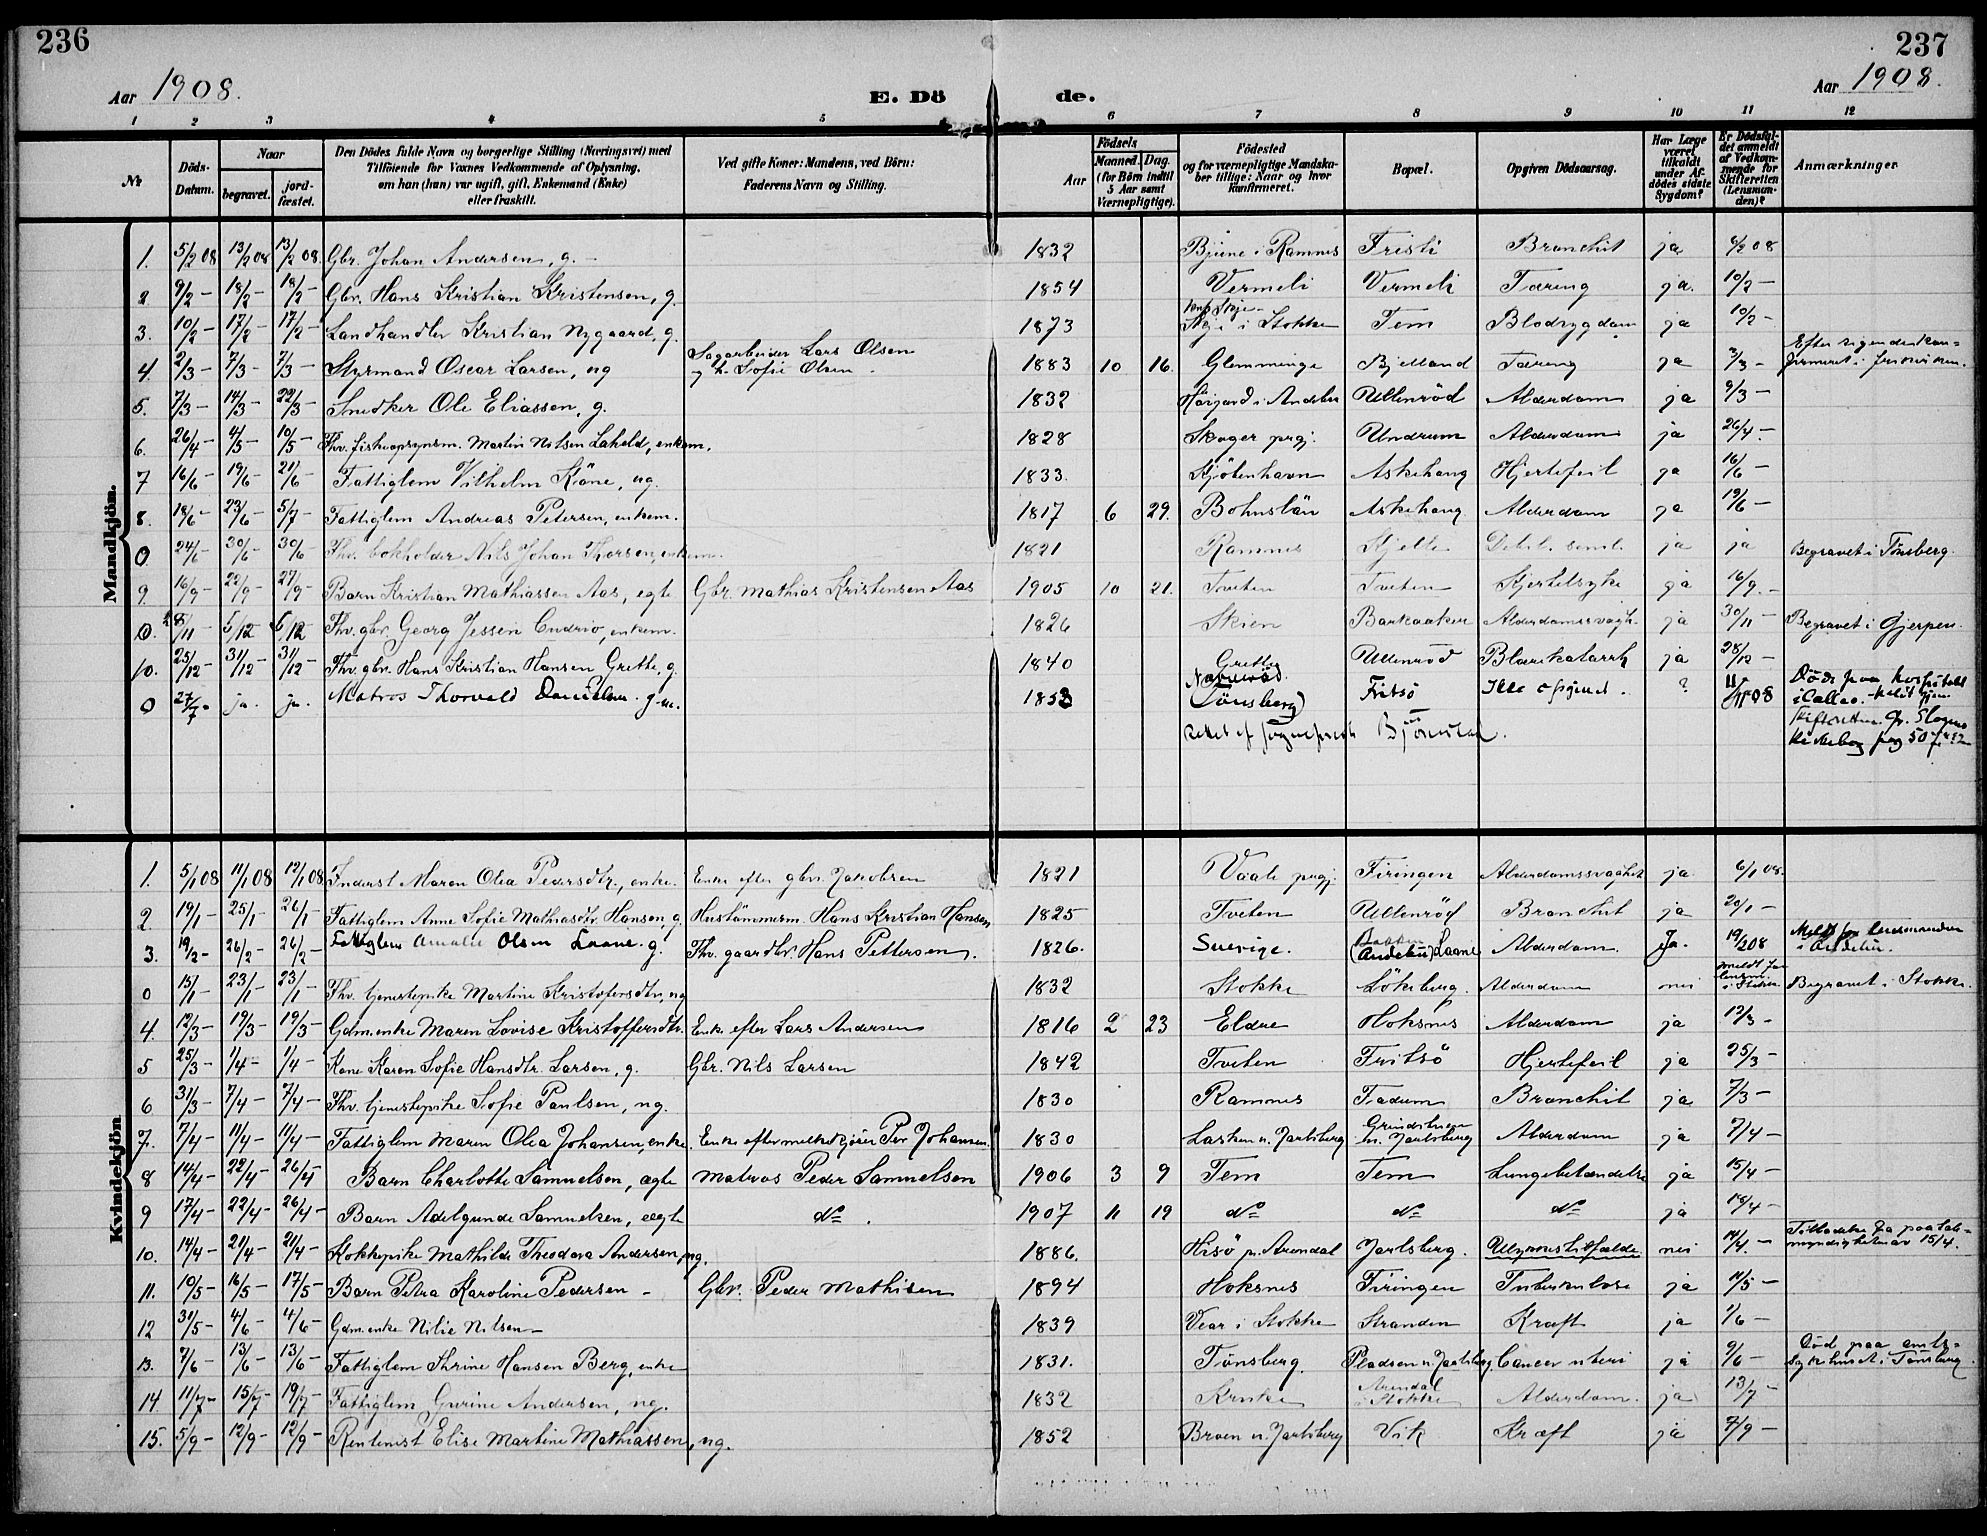 236
237
Aar 1908.
E. Dö de.
Aar 1908.
1 2 3 4 5 6 7 8 9 10 11 12
№
Döds-Datum.
Naar
begravet.
jord-fæstet.
Den Dödes fulde Navn og borgerlige Stilling (Næringsvei) med
Tilföiende for Voxnes Vedkommende af Oplysning,
om han (hun) var ugift, gift, Enkemand (Enke)
eller fraskilt.
Ved gifte Koner: Mandens, ved Börn:
Faderens Navn og Stilling.
Födsels
Aar
Maaned. Dag.
(for Börn indtil
5 Aar samt
Værnepligtige).
Födested
og for værnepligtige Mandska-
ber tillige: Naar og hvor
konfirmeret.
Bopæl.
Opgiven Dödsaarsag.
Har Læge
været
tilkaldt
under Af-
dödes sidste
Sygdom?
Er Dödsfal-
det anmeldt
af Vedkom-
mende for
Skifteretten
(Lensman-
den)?
Anmærkninger
Mandkjön.
1. 5/2 08 13/2 08 13/2 08. Gbr. Johan Andersen, g. - 1832 Bjune i Ramnes Fristi Bronchit ja 6/2 08
2 9/2 - 18/2 - 18/2 - Gbr. Hans Kristian Kristensen, g. 1854 Vermeli Vermeli Tæring ja. 10/2 -
3. 10/2 - 17/2 - 17/2 - Landhandler Kristian Nygaard, g. 1873 Skje i Stokke Tem Blodsygdom ja 10/2 -
4. 2/3 - 7/3 - 7/3 - Styrmand Oscar Larsen, ug Sagarbeider Lars Olsen
og h. Sofie Olsen 1883 10 16. Glemminge Bjelland Tæring ja 3/3 - Efter sigende kon-
firmeret i
5. 7/3 - 14/3 - 22/3 - Snedker Ole Eliassen, g. 1832 i Andebu Ullenröd Alderdom ja 9/3 -
6. 26/4 - 4/5 - 10/5 - Fhv. fiskeopsynsm. Martin Nilsen Lahell, enkem. 1828 Skoger prgj. Undrum Alderdom ja 26/4 -
7 16/6 - 19/6 - 21/6 - Fattiglem Vilhelm Köne, ug. 1833. Kjöbenhavn Askehaug Hjertefeil ja 16/6 -
8. 18/6 - 23/6 - 5/7 - Fattiglem Andreas Petersen, enkem. 1817 6 29. Bohuslän Askehaug Alderdom ja 19/6 -
0 24/6 - 30/6 - 30/6 - Fhv. bokholder Nils Johan Thorsen, enkem. 1821 Ramnes Kjelle Debil. senil. ja ja Begravet i Tönsberg.
9. 16/9 - 22/9 - 27/9 - Barn Kristian Mathiassen Aas, egte Gbr. Mathias Kristensen Aas 1905 10 21. Tveten Tveten Kjertelsyke ja 16/9. -
0. 28/11 - 5/12 - 5/12 Fhv. gbr. Georg Jessen Cudrio, enkem. 1826 Skien Barkaaker Alderdomssvagh. ja 30/11 - Begravet i Gjerpen.
10. 25/12 - 31/12 - 31/12 - Fhv. gbr. Hans Kristian Hansen Grette, g. 1840 Grette Ullenröd Blærekatarrh ja 28/12 -
0 27/7 - ja - ja - Matros Thorvald Danielsen g.m. 1853 Nauveröd
(Tönsberg) Fritsö Ikke opgivet. ? 08 Död paa hospitalet
i Callao. -
Skifteretten. Slagens
Kirkebog pag 50
rettet af sogneprest Björnstad.
Kvindekjön
1. 5/1 08 11/1 08 12/1 08 Inderst Maren Olea Pedersdtr, enke. Enke efter gbr. Jakobsen 1821 Vaale prgj. Firingen Alderdomssvaghet ja 6/1 08.
2 19/1 - 25/1 - 26/1 - Fattiglem Anne Sofie Mathiasdtr. Hansen, g. Hustömmerm. Hans Kristian Hansen 1825 Tveten Ullenröd Bronchit ja 20/1 -
3. 19/2 - 26/2 - 26/2 - Fattiglem Amalie Olsen Laane. g. Fhv. gaardbr. Hans Pettersen. 1826. Sverige. (Andebu) Laane Alderdom Ja. 19/2 08 Meldt for lensmanden
i Andebu.
0 15/1 - 23/1 - 23/1 - Fhv. tjenestepike Martine Kristofersdtr, ug 1832 Stokke Lökeberg. Alderdom nei meldt for
lensm.
i Stokke. Begravet i Stokke.
4. 12/3 - 19/3 - 19/3 - Gdm.enke Maren Lovise Kristoffersdtr. Enke efter Lars Andersen 1816 2 23 Eldre Hoksnes Alderdom ja 12/3 -
5 25/3 - 1/4 - 1/4 - Kone Karen Sofie Hansdtr. Larsen, g. Gbr. Nils Larsen 1842 Tveten Fritsö Hjertefeil ja 25/3 -
6 31/3 - 7/4 - 7/4 - Fhv. tjenestepike Sofie Paulsen, ug. 1830 Ramnes Fadum Bronchit ja 7/3 -
7. 7/4 - 11/4 - 11/4 - Fattiglem Maren Olea Johansen, enke Enke efter melkekjörer Per Johansen. 1830 Lasken u. Jarlsberg Grindstuen
u. Jarlsberg Alderdom ja 7/4 -
8 14/4 - 22/4 - 26/4 - Barn Charlotte Samuelsen, egte Matros Peder Samuelsen 1906 3 9 Tem Tem Lungebetændelse ja 15/4 -
9 17/4 - 22/4 - 26/4 - Barn Adelgunde Samuelsen, egte do. 1907 11 19 do do do ja 18/4 -
10. 14/4 - 21/4 - 21/4 - Kokkepike Mathilde Theodora Andersen, ug. 1886. Hisö pr. Arendal Jarlsberg. Ulykkestilfælde nei 14/4 - Tilladelse fra paatale-
myndigheten av 15/4.
11. 10/5 - 16/5 - 17/5 - Barn Petra Karoline Pedersen - Gbr. Peder Mathisen 1894 Hoksnes Firingen Tuberkulose ja 11/5 -
12 31/5 - 4/6 - 4/6 - Gdm.enke Nilie Nilsen - 1839 Vear i Stokke Stranden Kræft ja 1/6 -
13. 7/6 - 13/6 - 13/6 - Fattiglem Thrine Hansen Berg, enke 1831. Tönsberg. Pladsen u. Jarlsberg. Cancer uteri ja 9/6 - Död paa amts-
sykehuset i Tönsberg.
14. 11/7 - 15/7 - 19/7 - Fattiglem Gurine Andersen, ug. 1832 Kruke Arendal
i Stokke Alderdom. ja 13/7 -
15. 5/9 - 12/9 - 12/9 - Rentenist Elise Martine Mathiassen, ug. 1852 Broen u. Jarlsberg Vik Kræft ja 7/9 -